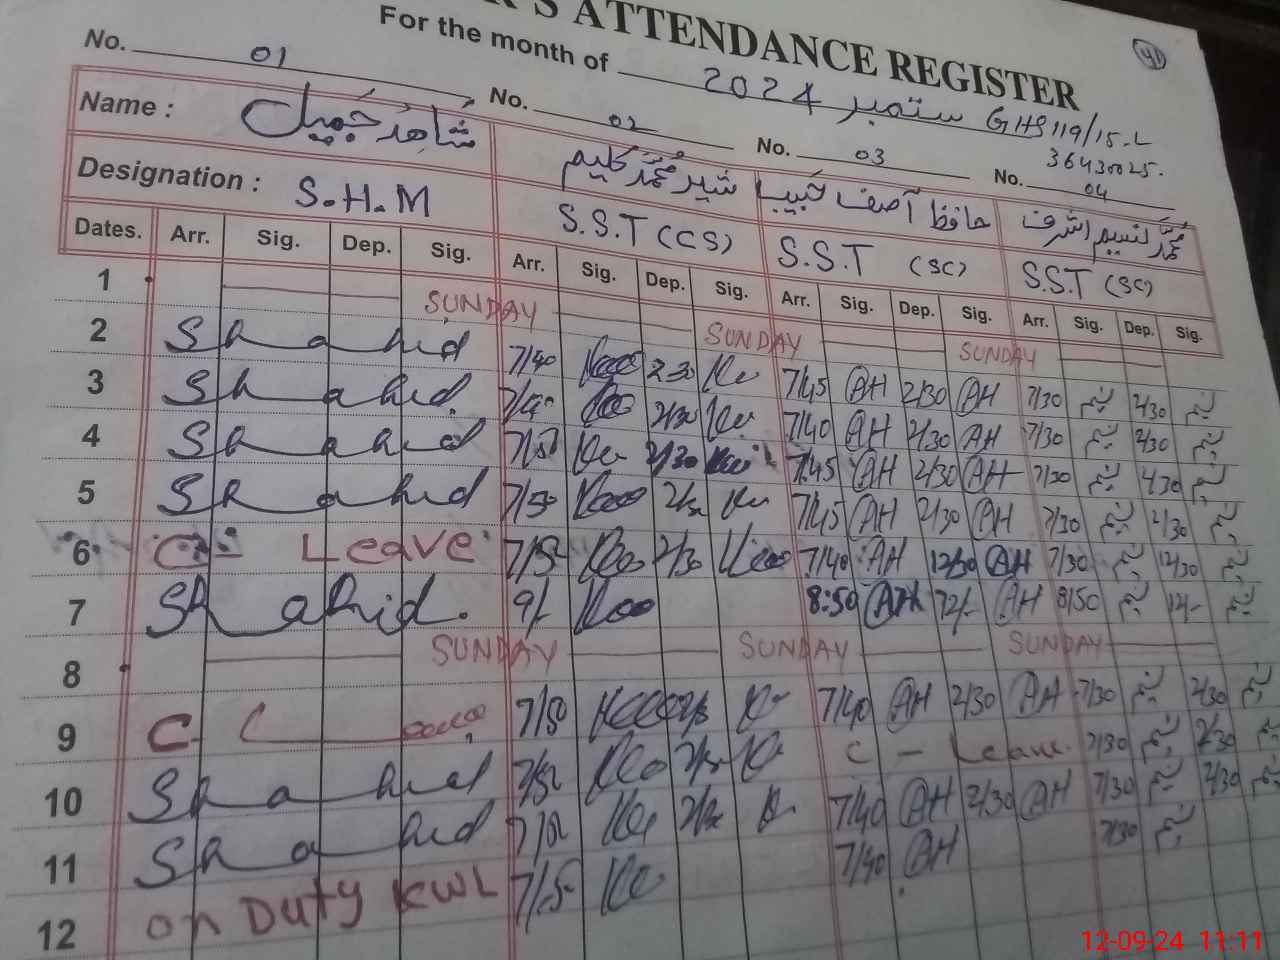 R'S ATTENDANCE REGISTER
41
For the month of ستمبر 2024 GHS 119/15-L
36430025.
No. 01 No. 02 No. 03 No. 04
Name : شاہد جمیل شیر محمد کلیم حافظ آصف حبیب محمد نسیم اشرف
Designation : S.H.M S.S.T (CS) S.S.T (SC) S.S.T (SC)
Dates. Arr. Sig. Dep. Sig. Arr. Sig. Dep. Sig. Arr. Sig. Dep. Sig. Arr. Sig. Dep. Sig.
1 SUNDAY SUNDAY SUNDAY
2 Shahid 7/40 2/30 7/45 AH 2/30 AH 7/30 نسیم 2/30 نسیم
3 Shahid. 2/30 7/40 AH 2/30 AH 7/30 نسیم 2/30 نسیم
4 Shahid 7/50 2/30 7/45 AH 2/30 AH 7/30 نسیم 2/30 نسیم
5 Shahid 7/50 7/45 AH 2/30 AH 7/30 نسیم 2/30 نسیم
6 C - Leave 7/50 2/30 7/40 AH 12/30 AH 7/30 نسیم 12/30 نسیم
7 Shahid. 9/- 8:50 AH 12/- AH 8/50 نسیم 12/- نسیم
8 SUNDAY SUNDAY SUNDAY
9 C Leave 7/50 7/40 AH 2/30 AH 7/30 نسیم 2/30 نسیم
10 Shahid 7/50 C - Leave. 7/30 نسیم 2/30 نسیم
11 Shahid 7/50 7/40 AH 2/30 AH 7/30 نسیم 2/30 نسیم
12 on Duty KWL 7/5- 7/40 AH 7/30 نسیم
12-09-24 11:11